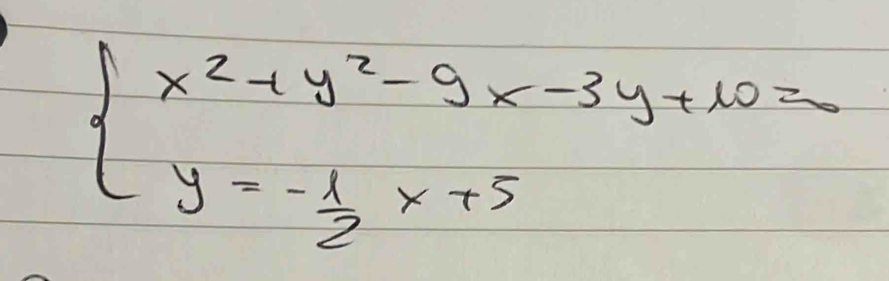 x² + y² - 9x - 3y + 10 = 0
y = -1/2 x + 5